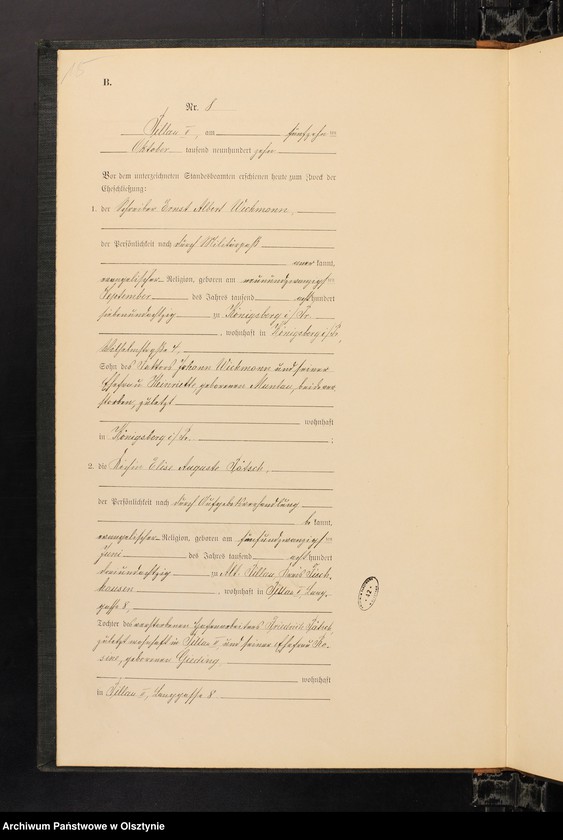 B.
Nr. 8
Pillau I, am fünfzehnten
Oktober tausend neunhundert zehn
Vor dem unterzeichneten Standesbeamten erschienen heute zum Zweck der
Eheschließung:
1. der Schreiber Ernst Albert Wichmann,
der Persönlichkeit nach durch Militärpaß
anerkannt,
evangelischer Religion, geboren am neunundzwanzigsten
September des Jahres tausend achthundert
siebenundachtzig zu Königsberg i/Pr.
, wohnhaft in Königsberg i/Pr.,
4,
Sohn des Johann Wichmann und seiner
Ehefrau Henriette, geborenen beide ver-
storben, zuletzt
wohnhaft
in Königsberg i/Pr. ;
2. die Elise Auguste
der Persönlichkeit nach durch Aufgebotsverhandlung
bekannt,
evangelischer Religion, geboren am fünfundzwanzigsten
Juni des Jahres tausend achthundert
zu Alt Pillau, Kreis Fisch-
hausen , wohnhaft in Pillau II, Lang-
gasse 8,
Tochter des verstorbenen Hafenarbeiters Friedrich
zuletzt wohnhaft in Pillau II und seiner Ehefrau Ro-
sine, geborenen
wohnhaft
in Pillau II, Langgasse 8
12
Archiwum Państwowe w Olsztynie